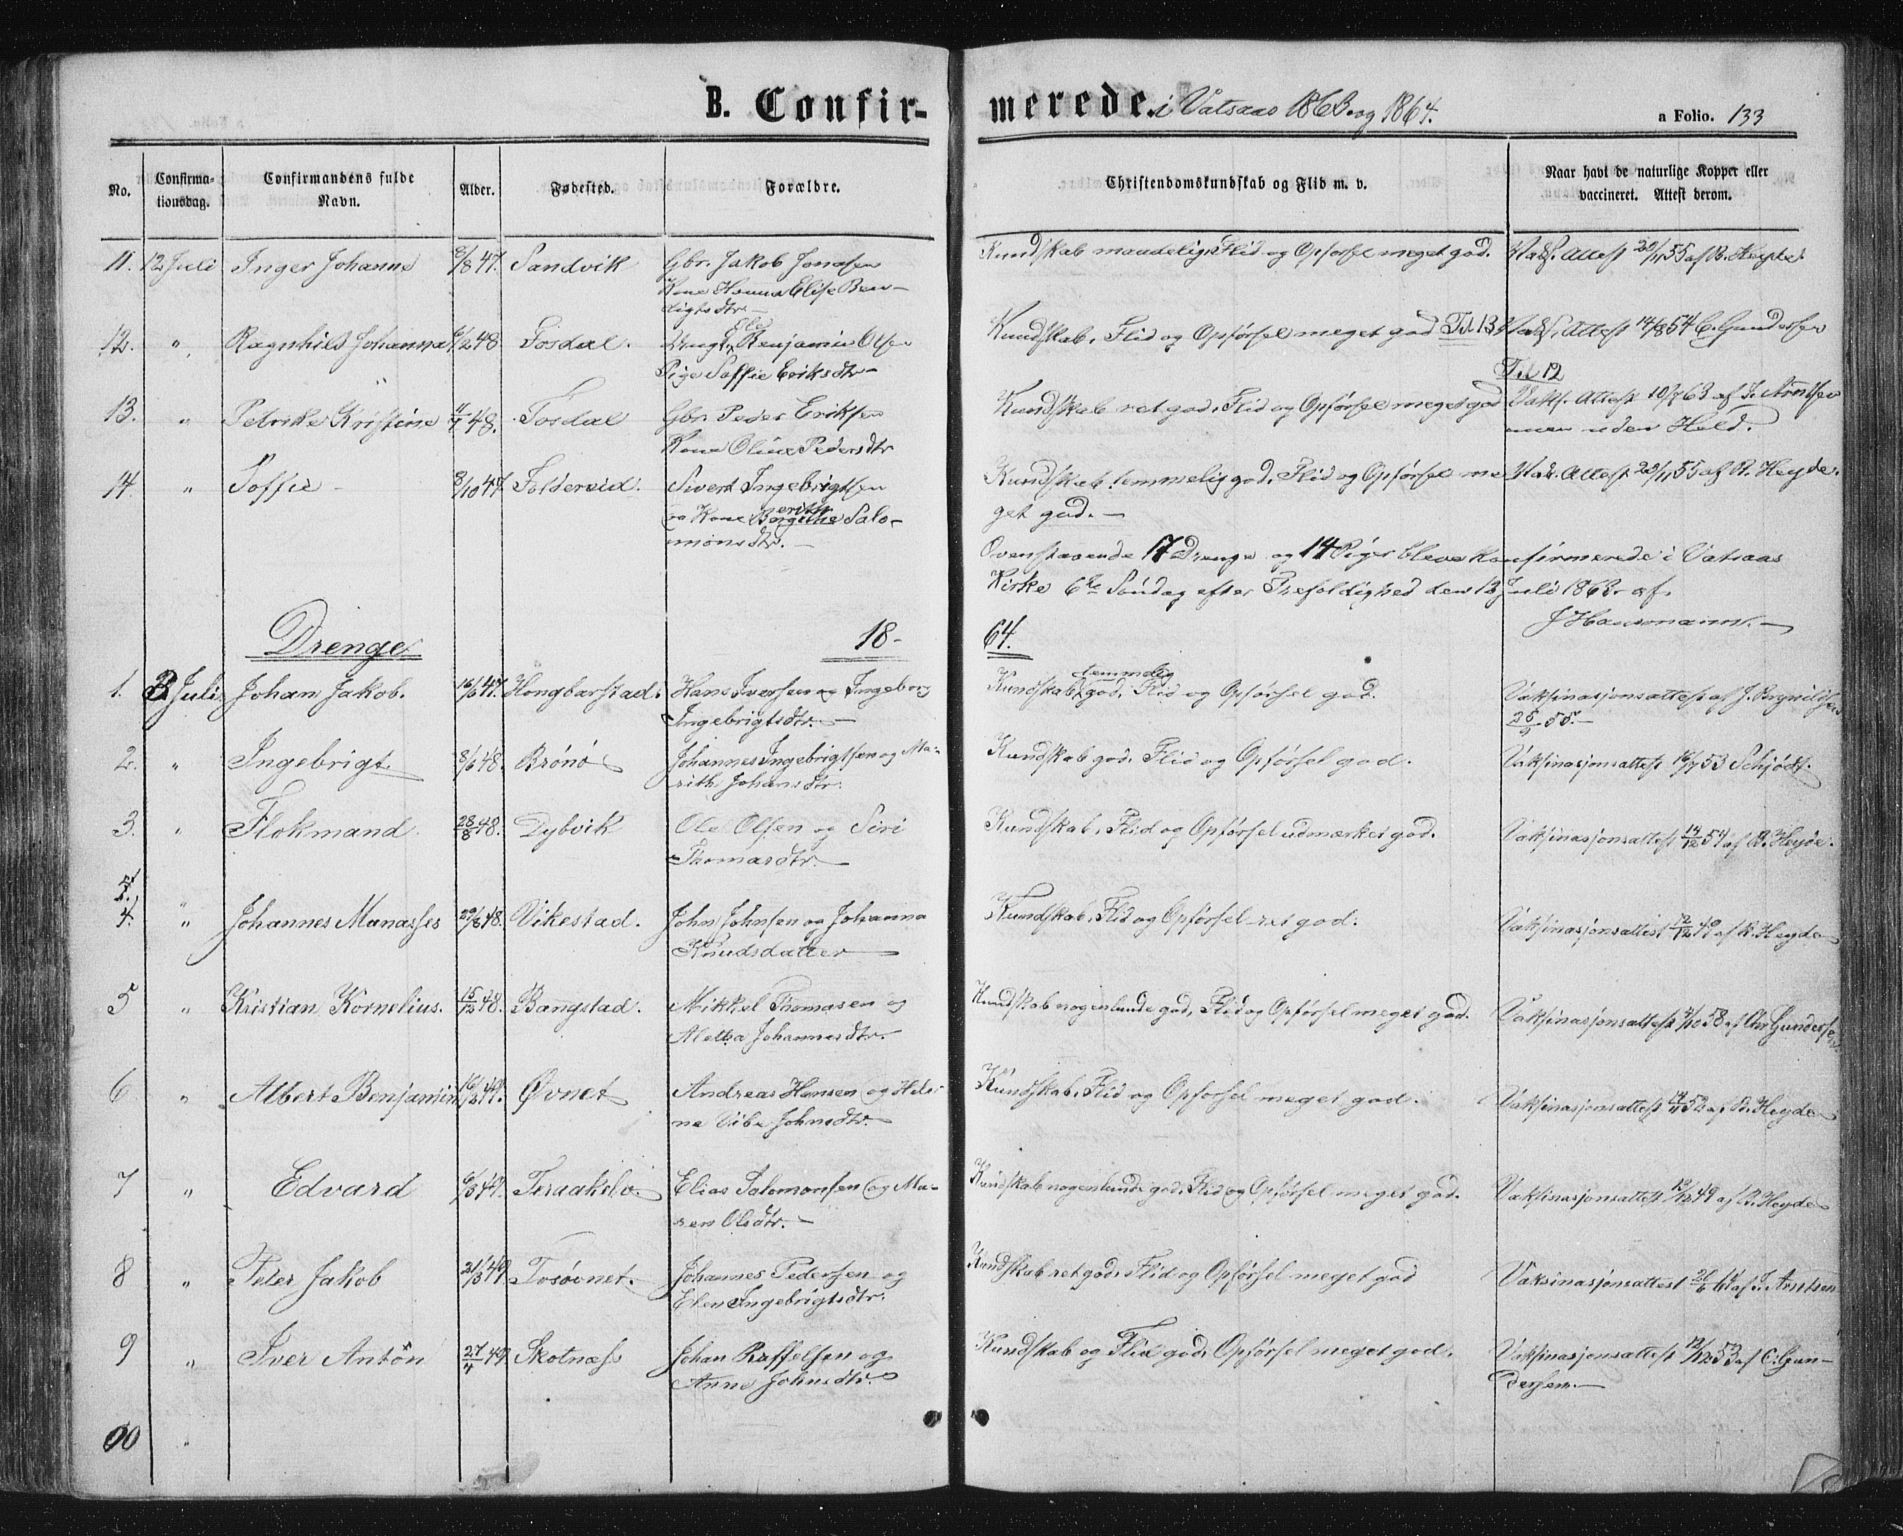 B. Confirmerede i Vatsaas 1863 og 1864.
a Folio. 133
No.
Confirmationsdag.
Confirmandens fulde Navn.
Alder.
Fødested.
Forældre.
Christendomskundskab og Flid m. v.
Naar havt de naturlige Kopper eller vaccineret. Attest derom.
11. 12 Juli Inger Johanne 8/8 47. Sandvik Gbr. Jakob Jonasen Kundskab maadelig, Flid og Opførsel meget god. Vaks. Attest 20/11 55 af R. Heyde.
Kone Hanna Elise Ben-
digtsdtr.
12. " Ragnhild Johanna 6/2 48. Tosdal. Ungk. Ole Benjamin Olsen Kundskab, Flid og Opførsel meget god Til 13 Vaks. Attest 14/8 54 C. Gundersen
Pige Soffie Eriksdtr Til 12
13. " Petrike Kristine 4/4 48. Tosdal Gbr. Peder Eriksen Kundskab ret god, Flid og Opførsel meget god Vaks. Attest 10/7 63 af J. Arntsen
Kone Oline Pedersdtr men uden Held.
14. " Soffie 8/10 47 Foldereid. Sivert Ingebrigtsen Kundskab temmelig god, Flid og Opførsel me- Vak. Attest 20/11 55 af R. Heyde.
og Kone Salo- get god.
monsdtr.
Ovenstaaende 17 Drenge og 14 Piger bleve konfirmerede i Vatsaas
Kirke 6te Søndag efter Trefoldighed den 12 Juli 1863 af
J Hansmann.
Drenge 18- 64.
1. 3 Juli Johan Jakob. 16/6 47. Hongbarstad. Hans Iversen og Ingeborg Kundskab temmelig god, Flid og Opførsel god. Vaksinasjonsattest af J. Brynildsen
Ingebrigtsdtr. 25/9 55.
2. " Ingebrigt 8/6 48. Brønø Johannes Ingebrigtsen og Ma- Kundskab god, Flid og Opførsel god. Vaksinasjonsattest 16/7 53 Schjødt.
rith Johansdtr.
3. " Flokmand 28/8 48. Dybvik Ole Olsen og Siri Kundskab, Flid og Opførsel udmærket god. Vaksinasjonsattest 14/12 54 af R. Heyde.
Thomasdtr.
4. " Johannes Manasses 29/8 48. Vikestad. John Johnsen og Johanna Kundskab, Flid og Opførsel ret god. Vaksinasjonsattest 12/12 49 af R. Heyde
Knudsdatter
5 " Kristian Kornelius. 15/12 48. Bangstad. Mikkel Thomasen og Kundskab nogenlunde god, Flid og Opførsel meget god. Vaksinasjonsattest 4/10 58 af Chr Gundersen
Aletta Johannesdtr.
6 " Albert Benjamin 16/2 49. Øvnet Andreas Hansen og Hele- Kundskab, Flid og Opførsel meget god. Vaksinasjonsattest 14/11 52 af R. Heyde
na Vibe Johnsdtr.
7 " Edvard 6/3 49. Teraakelv. Elias Salomonsen og Ma- Kundskab nogenlunde god, Flid og Opførsel meget god. Vaksinasjonsattest 12/12 49 af R. Heyde
ren Olsdtr.
8 " Peter Jakob 21/3 49 Tosøvnet. Johannes Pedersen og Kundskab ret god. Flid og Opførsel meget god Vaksinasjonsattest 21/6 61 af J. Arntsen
Elen Ingebrigtsdtr.
9 " Iver Anton 27/4 49. Skotnæss Johan Raffelsen og Kundskab og Flid god, Opførsel meget god. Vaksinasjonsattest 12/12 53 af C. Gun-
Anne Johnsdtr. dersen.